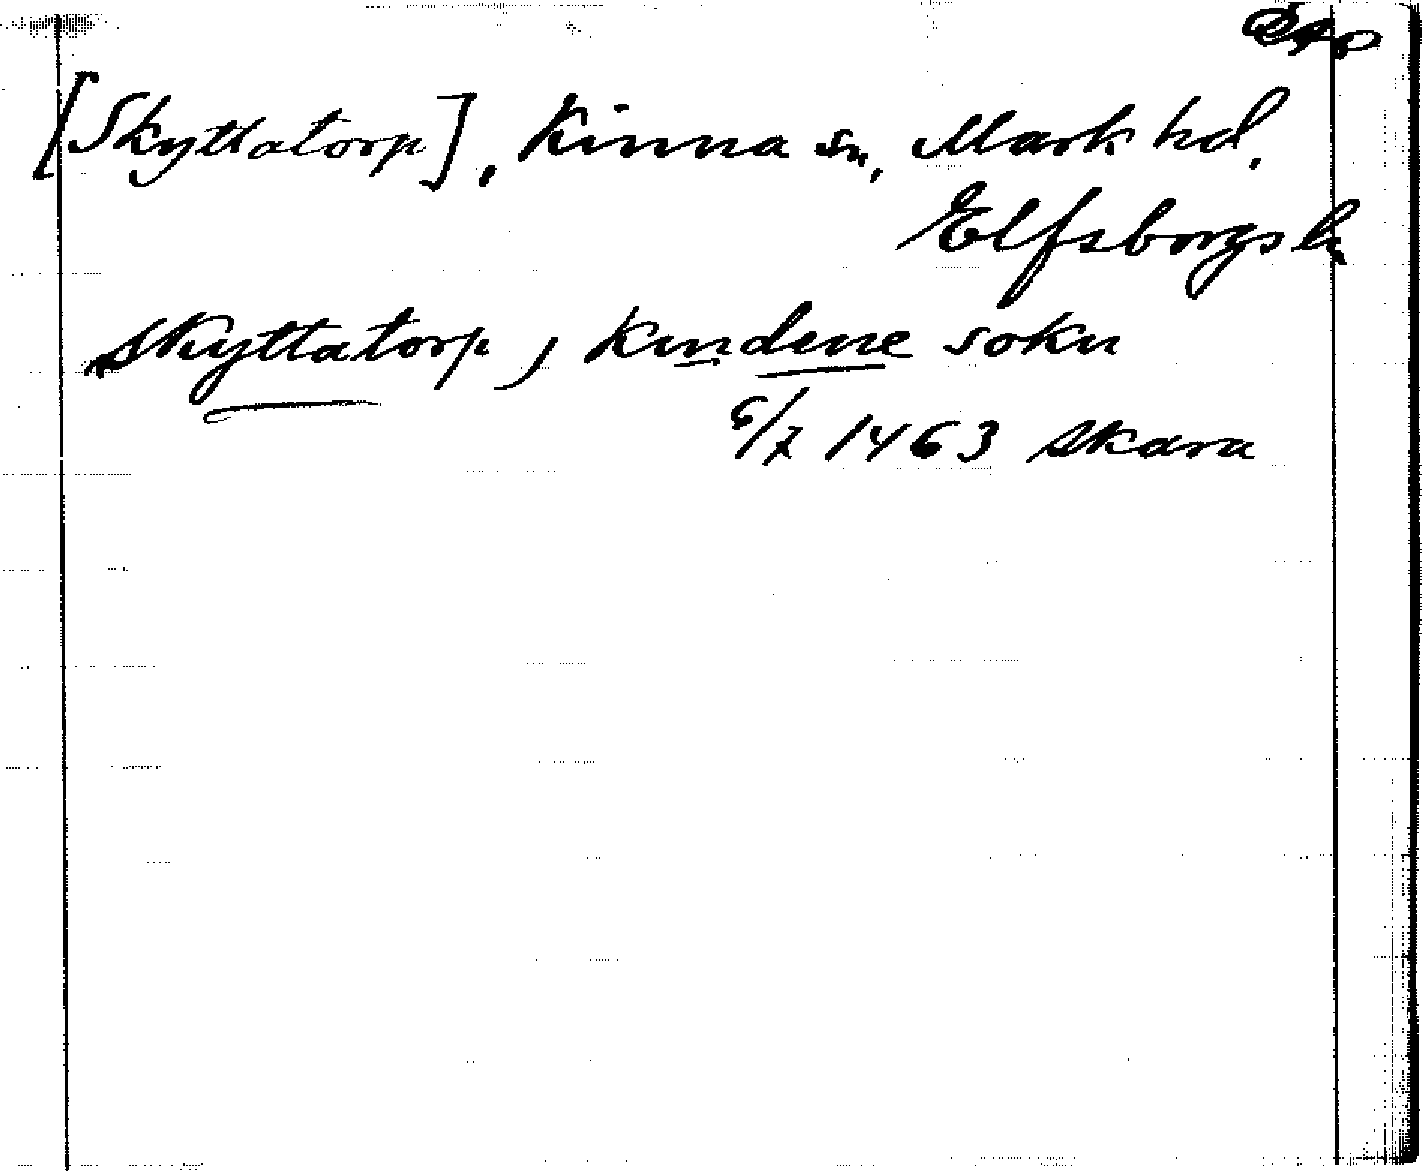 [Skyttatorp], Kinna sn, Mark hd,
Elfsborgs l.
Skyttatorp, Kindene sokn
6/7 1463 Skara